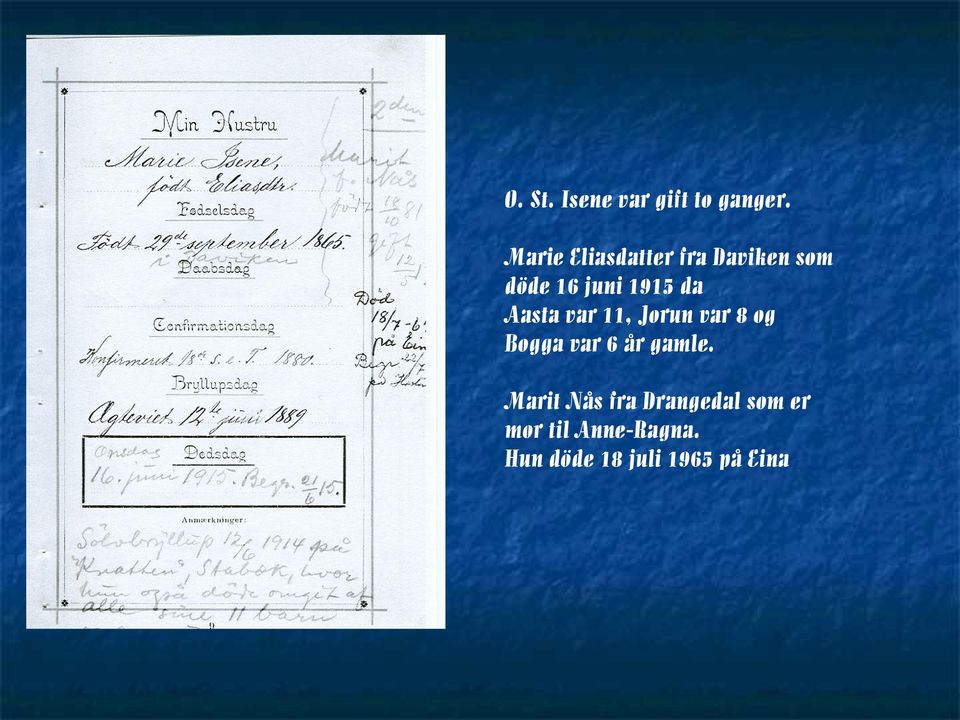 Min Hustru
Marie Isene,
født Eliasdtr.
Fødselsdag
Født 29de september 1865.
i Daviken
Daabsdag
Confirmationsdag
Konfirmeret 18de s. e. T. 1880.
Bryllupsdag
Ægteviet 12te juni 1889
Dødsdag
Onsdag
16. juni 1915. Begr. 21/6 15.
Anmærkninger:
Sölvbryllup 12/6 1914 på
"Knatten", Stabæk, hvor
hun også døde omgit af
alle sine 11 barn
9
2den
Marit
f. Nås
født 18/10 81
gift
12/5
Død
18/7 - 6
på Ein
Begr. 22/7
på
O. St. Isene var gift to ganger.
Marie Eliasdatter fra Daviken som
döde 16 juni 1915 da
Aasta var 11, Jorun var 8 og
Bogga var 6 år gamle.
Marit Nås fra Drangedal som er
mor til Anne-Ragna.
Hun döde 18 juli 1965 på Eina